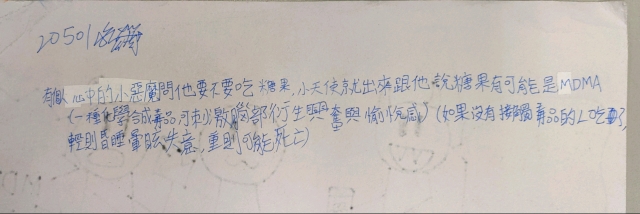 20501
有個人心中的小惡魔問他要不要吃糖果,小天使就出來跟他說糖果有可能是MDMA
(一種化學合成毒品,可刺激腦部衍生興奮與愉悅感)(如果沒有接觸毒品的人吃了,
輕則昏睡暈眩失意,重則可能死亡)